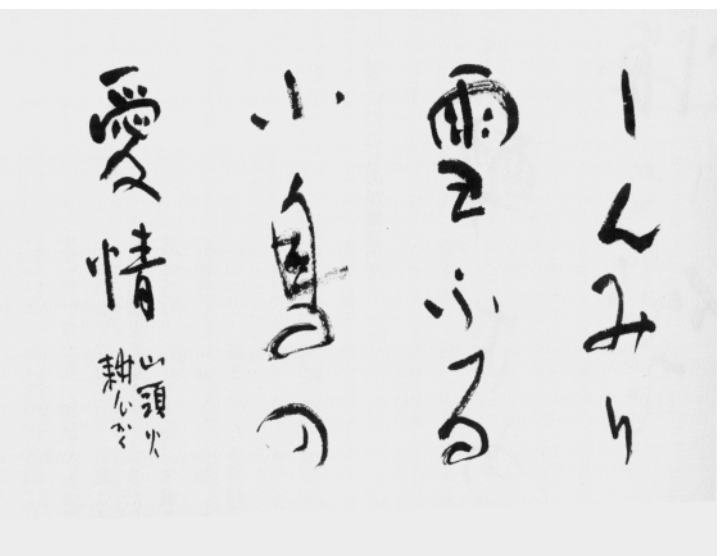 しんみり
雪ふる
小鳥の
愛情
山頭火
耕心かく